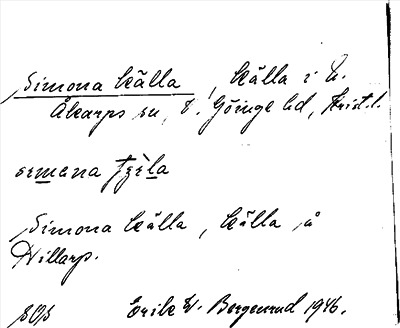 Simona källa, källa i N.
Åkarps sn, V. Göinge hd, Krist. l.
semena
Simona källa, källa å
Villarp.
Erik V. Bergenrud 1946.